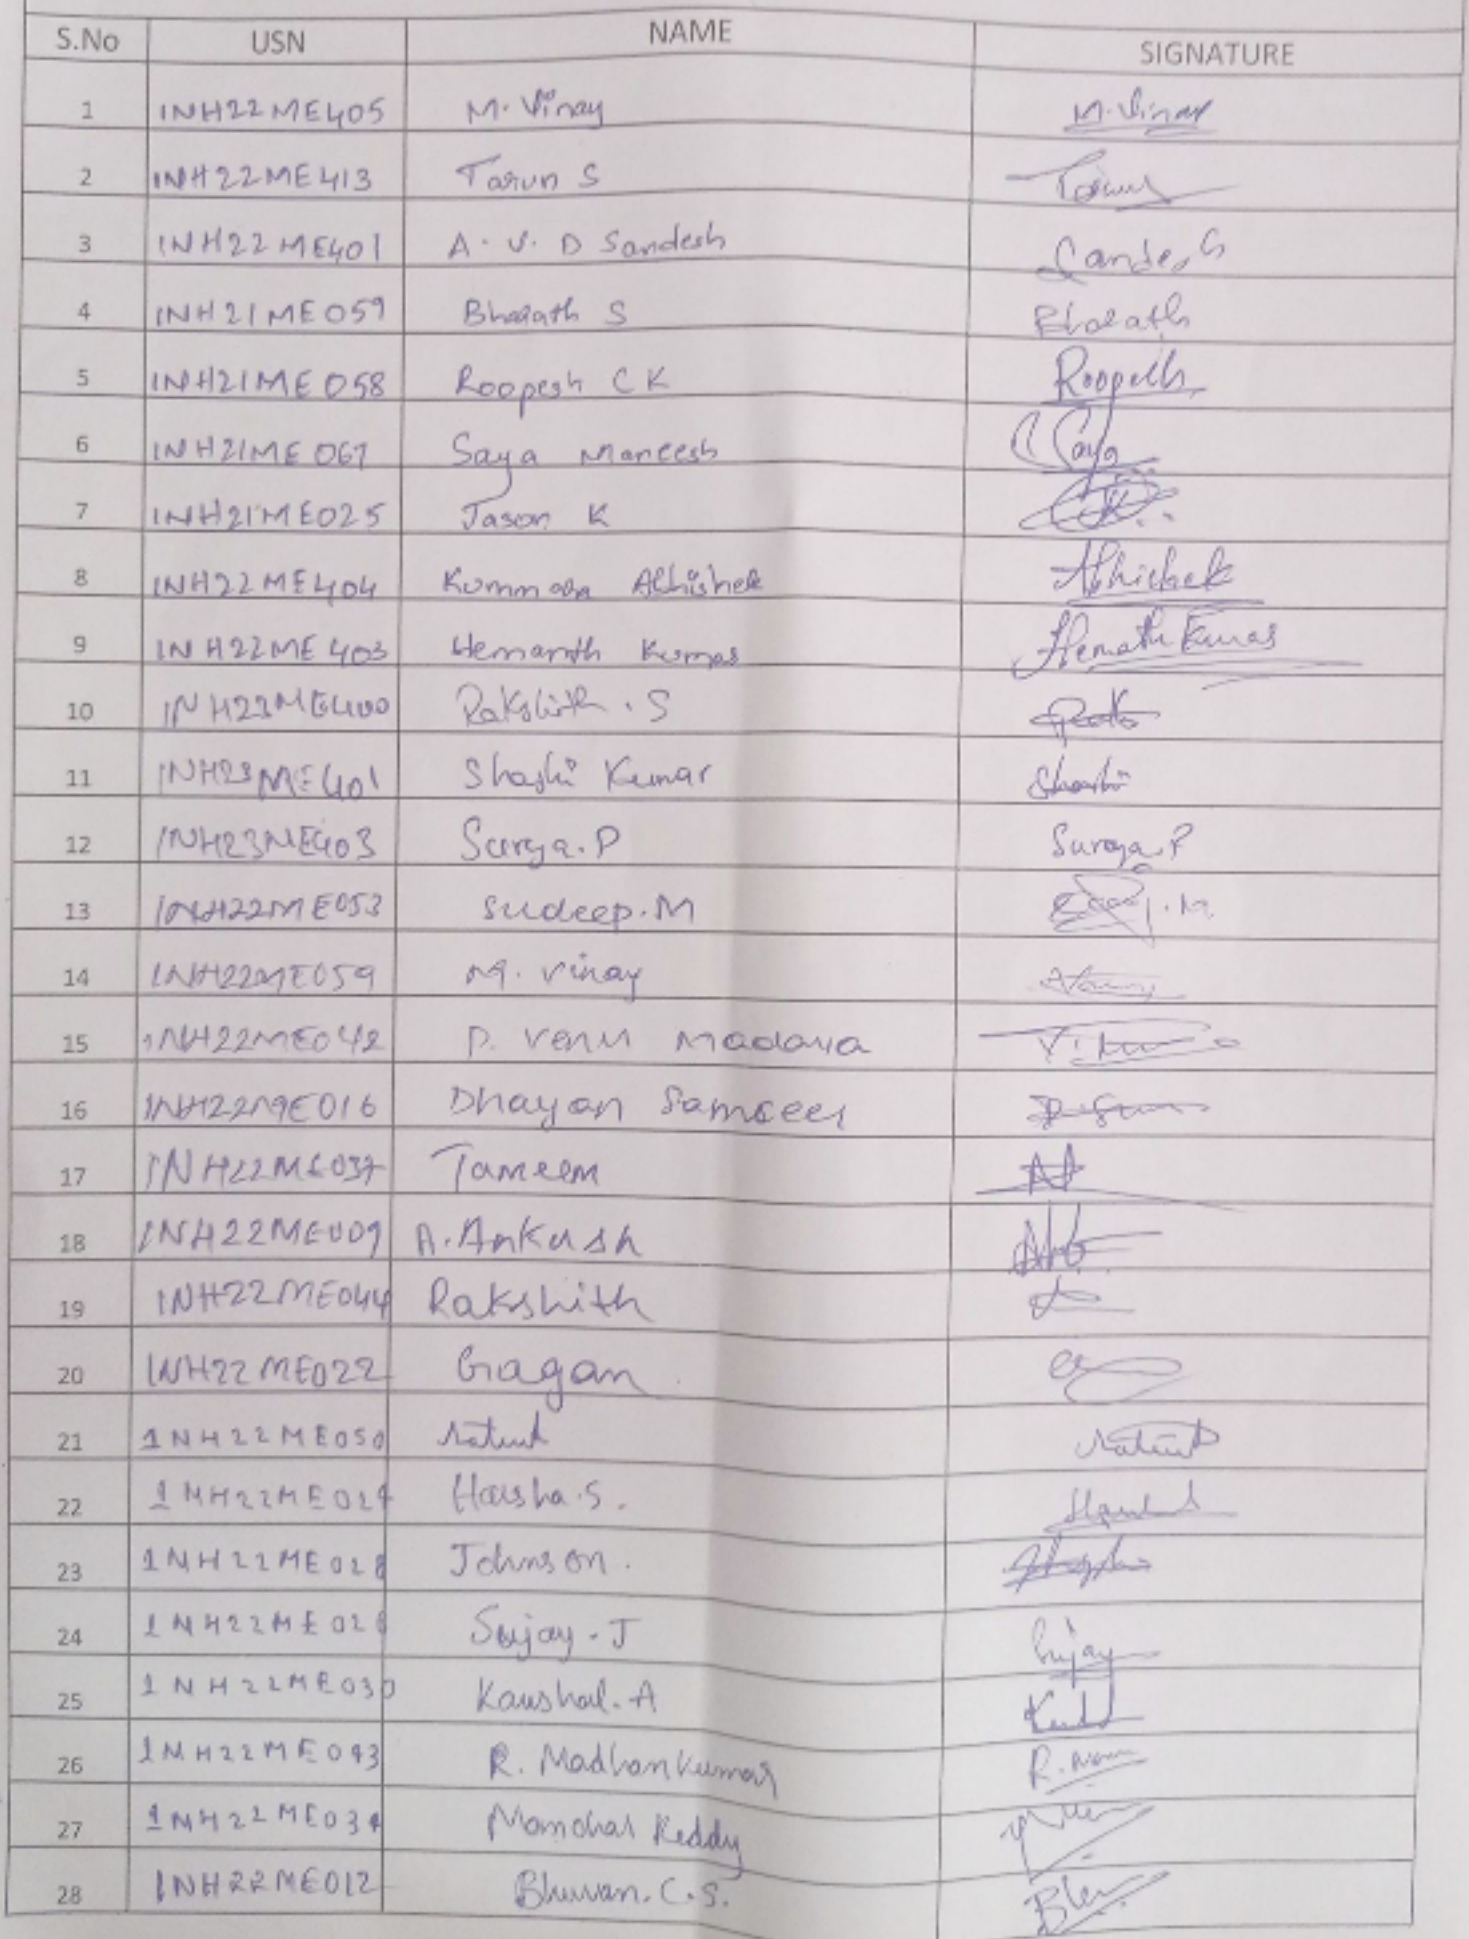 S.No USN NAME SIGNATURE
1 1NH22ME405 M. Vinay M. Vinay
2 1NH22ME413 Tarun S Tarun
3 1NH22ME401 A. V. D Sandesh Sandesh
4 1NH21ME059 Bharath S Bharath
5 1NH21ME058 Roopesh C K Roopesh
6 1NH21ME067 Saya Maneesh Saya
7 1NH21ME025 Jason K
8 1NH22ME404 Kummara Abhishek Abhishek
9 1NH22ME403 Hemanth Kumar Hemath Kumar
10 1NH23ME400 Rakshith . S
11 1NH23ME401 Shashi Kumar Shashi
12 1NH23ME403 Surya. P Surya. P
13 1NH22ME053 Sudeep. M
14 1NH22ME059 M. Vinay
15 1NH22ME042 P. Venu Madava
16 1NH22ME016 Dhayan Sameer
17 1NH22ME037 Tameem
18 1NH22ME009 A. Ankush
19 1NH22ME044 Rakshith
20 1NH22ME022 Gagan
21 1NH22ME050
22 Harsha. S.
23 1NH22ME028 Johnson.
24 Sujay. J Sujay
25 1NH22ME030 Kaushal. A
26 R. Madhan Kumar
27 Manohar Reddy
28 1NH22ME012 Bhuvan. C. S.